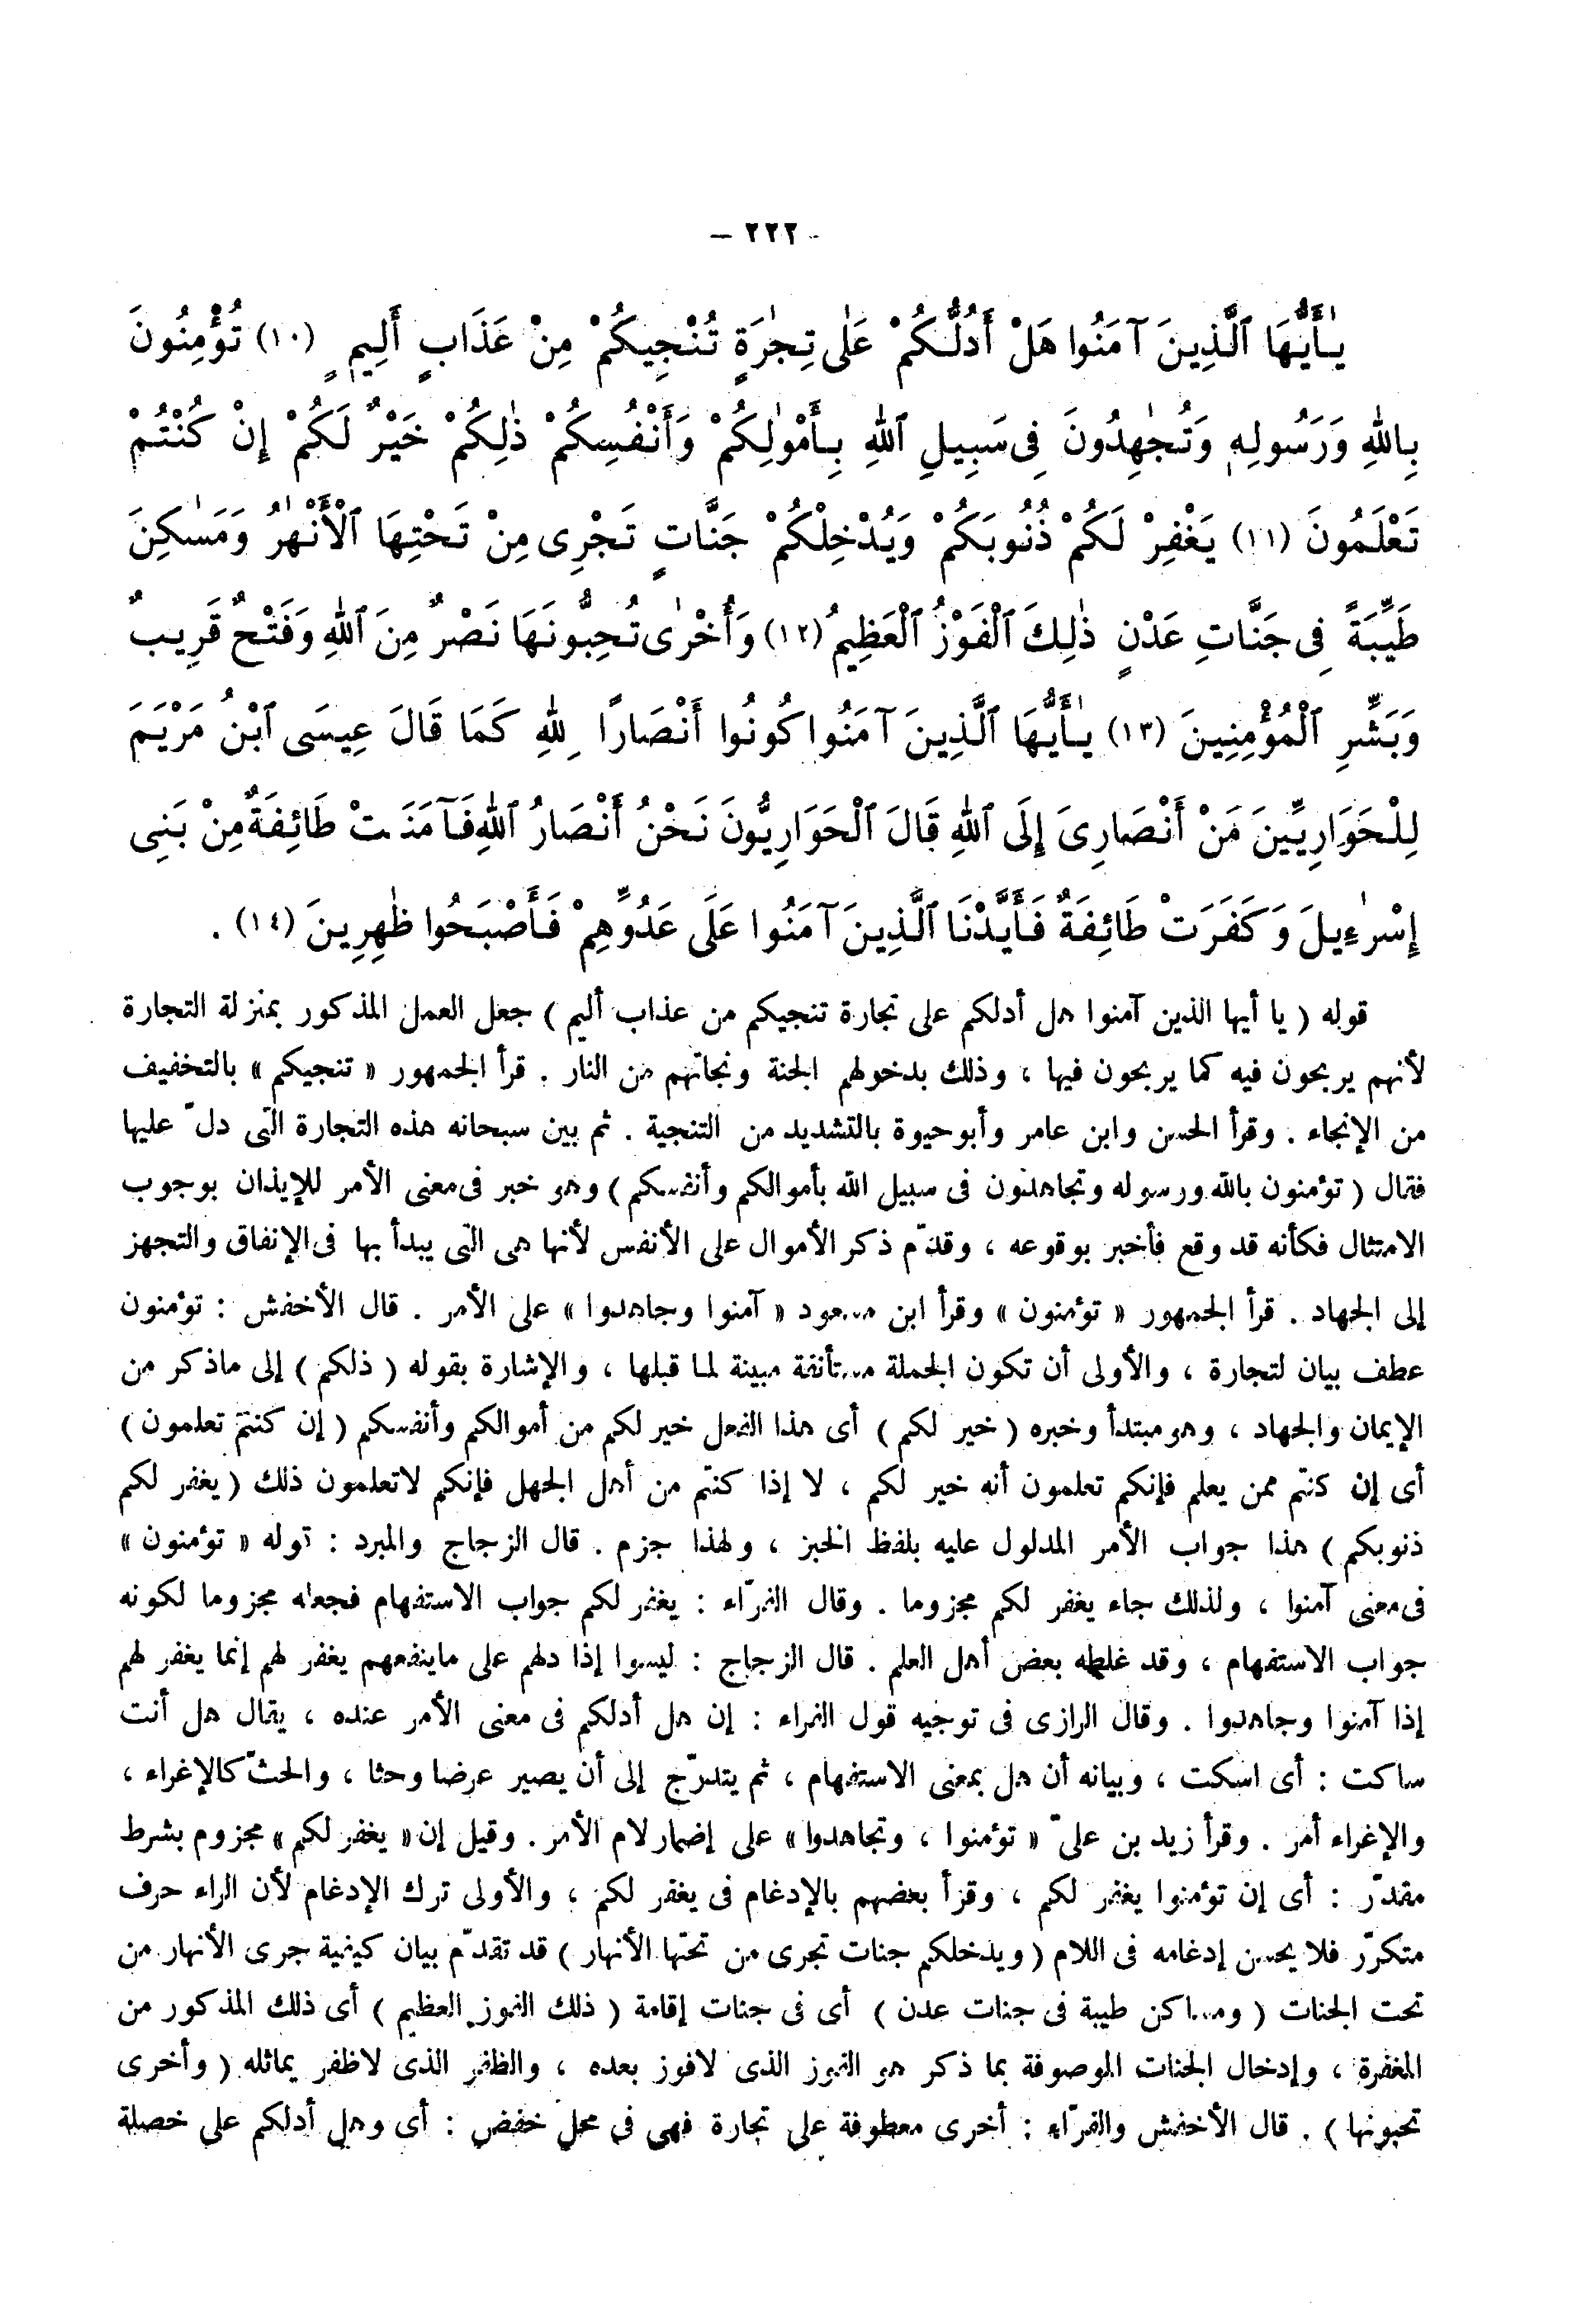 - ٢٢٢ -
يَٰأَيُّهَا ٱلَّذِينَ آمَنُوا هَلْ أَدُلُّكُمْ عَلَى تِجَٰرَةٍ تُنْجِيكُمْ مِنْ عَذَابٍ أَلِيمٍ (١٠) تُؤْمِنُونَ
بِاللهِ وَرَسُولِهِ وَتُجَٰهِدُونَ فِى سَبِيلِ ٱللهِ بِأَمْوَٰلِكُمْ وَأَنْفُسِكُمْ ذَٰلِكُمْ خَيْرٌ لَكُمْ إِنْ كُنْتُمْ
تَعْلَمُونَ (١١) يَغْفِرْ لَكُمْ ذُنُوبَكُمْ وَيُدْخِلْكُمْ جَنَّاتٍ تَجْرِى مِنْ تَحْتِهَا ٱلْأَنْهَٰرُ وَمَسَٰكِنَ
طَيِّبَةً فِى جَنَّاتِ عَدْنٍ ذَٰلِكَ ٱلْفَوْزُ ٱلْعَظِيمُ (١٢) وَأُخْرَىٰ تُحِبُّونَهَا نَصْرٌ مِنَ ٱللهِ وَفَتْحٌ قَرِيبٌ
وَبَشِّرِ ٱلْمُؤْمِنِينَ (١٣) يَٰأَيُّهَا ٱلَّذِينَ آمَنُوا كُونُوا أَنْصَارًا لِلهِ كَمَا قَالَ عِيسَى ٱبْنُ مَرْيَمَ
لِلْحَوَارِيِّينَ مَنْ أَنْصَارِىَ إِلَى ٱللهِ قَالَ ٱلْحَوَارِيُّونَ نَحْنُ أَنْصَارُ ٱللهِ فَآمَنَتْ طَائِفَةٌ مِنْ بَنِى
إِسْرَٰءِيلَ وَكَفَرَتْ طَائِفَةٌ فَأَيَّدْنَا ٱلَّذِينَ آمَنُوا عَلَى عَدُوِّهِمْ فَأَصْبَحُوا ظَٰهِرِينَ (١٤) .
قوله ( يا أيها الذين آمنوا هل أدلكم على تجارة تنجيكم من عذاب أليم ) جعل العمل المذكور بمنزلة التجارة
لأنهم يربحون فيه كما يربحون فيها ، وذلك بدخولهم الجنة ونجاتهم من النار . قرأ الجمهور « تنجيكم » بالتخفيف
من الإنجاء . وقرأ الحسن وابن عامر وأبوحيوة بالتشديد من التنجية . ثم بين سبحانه هذه التجارة التى دلّ عليها
فقال ( تؤمنون بالله ورسوله وتجاهدون فى سبيل الله بأموالكم وأنفسكم ) وهو خبر فى معنى الأمر للإيذان بوجوب
الامتثال فكأنه قد وقع فأخبر بوقوعه ، وقدّم ذكر الأموال على الأنفس لأنها هى التى يبدأ بها فى الإنفاق والتجهز
إلى الجهاد . قرأ الجمهور « تؤمنون » وقرأ ابن مسعود « آمنوا وجاهدوا » على الأمر . قال الأخفش : تؤمنون
عطف بيان لتجارة ، والأولى أن تكون الجملة مستأنفة مبينة لما قبلها ، والإشارة بقوله ( ذلكم ) إلى ماذكر من
الإيمان والجهاد ، وهو مبتدأ وخبره ( خير لكم ) أى هذا الفعل خير لكم من أموالكم وأنفسكم ( إن كنتم تعلمون )
أى إن كنتم ممن يعلم فإنكم تعلمون أنه خير لكم ، لا إذا كنتم من أهل الجهل فإنكم لاتعلمون ذلك ( يغفر لكم
ذنوبكم ) هذا جواب الأمر المدلول عليه بلفظ الخبز ، ولهذا جزم . قال الزجاج والمبرد : قوله « تؤمنون »
فى معنى آمنوا ، ولذلك جاء يغفر لكم مجزوما . وقال الفرّاء : يغفر لكم جواب الاستفهام فجعله مجزوما لكونه
جواب الاستفهام ، وقد غلطه بعض أهل العلم . قال الزجاج : ليسوا إذا دلهم على ماينفعهم يغفر لهم إنما يغفر لهم
إذا آمنوا وجاهدوا . وقال الرازى فى توجيه قول الفراء : إن هل أدلكم فى معنى الأمر عنده ، يقال هل أنت
ساكت : أى اسكت ، وبيانه أن هل بمعنى الاستفهام ، ثم يتدرّج إلى أن يصير عرضا وحثا ، والحثّ كالإغراء ،
والإغراء أمر . وقرأ زيد بن علىّ « تؤمنوا ، وتجاهدوا » على إضمار لام الأمر . وقيل إن « يغفر لكم » مجزوم بشرط
مقدّر : أى إن تؤمنوا يغفر لكم ، وقرأ بعضهم بالإدغام فى يغفر لكم ، والأولى ترك الإدغام لأن الراء حرف
متكرّر فلا يحسن إدغامه فى اللام ( ويدخلكم جنات تجرى من تحتها الأنهار ) قد تقدّم بيان كيفية جرى الأنهار من
تحت الجنات ( ومساكن طيبة فى جنات عدن ) أى فى جنات إقامة ( ذلك الفوز العظيم ) أى ذلك المذكور من
المغفرة ، وإدخال الجنات الموصوفة بما ذكر هو الفوز الذى لافوز بعده ، والظفر الذى لاظفر يماثله ( وأخرى
تحبونها ) . قال الأخفش والفرّاء : أخرى معطوفة على تجارة فهى فى محل خفض : أى وهل أدلكم على خصلة